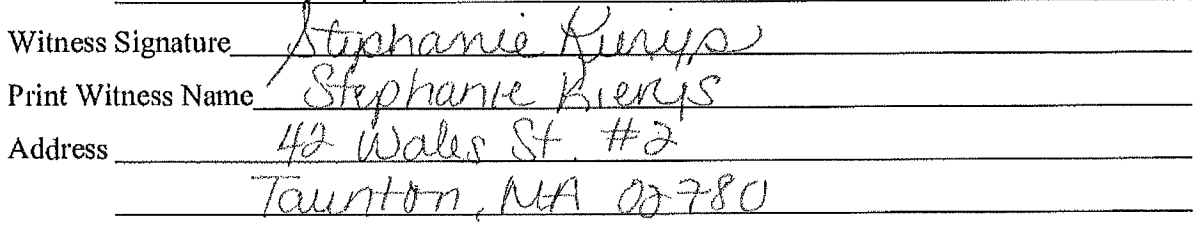 Witness Signature Stephanie Kierys
Print Witness Name Stephanie Kierys
Address 42 Wales St. #2
Taunton, MA 02780